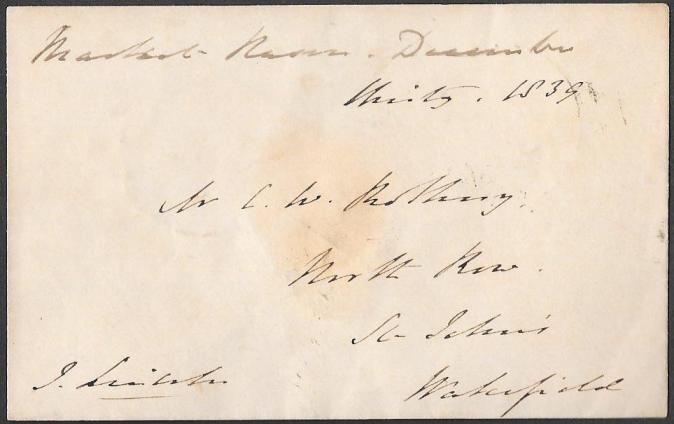 Market Rasen. December
thirty. 1839
Mr C. W. Rothery.
North Row.
St John's
Wakefield
J. Lincoln